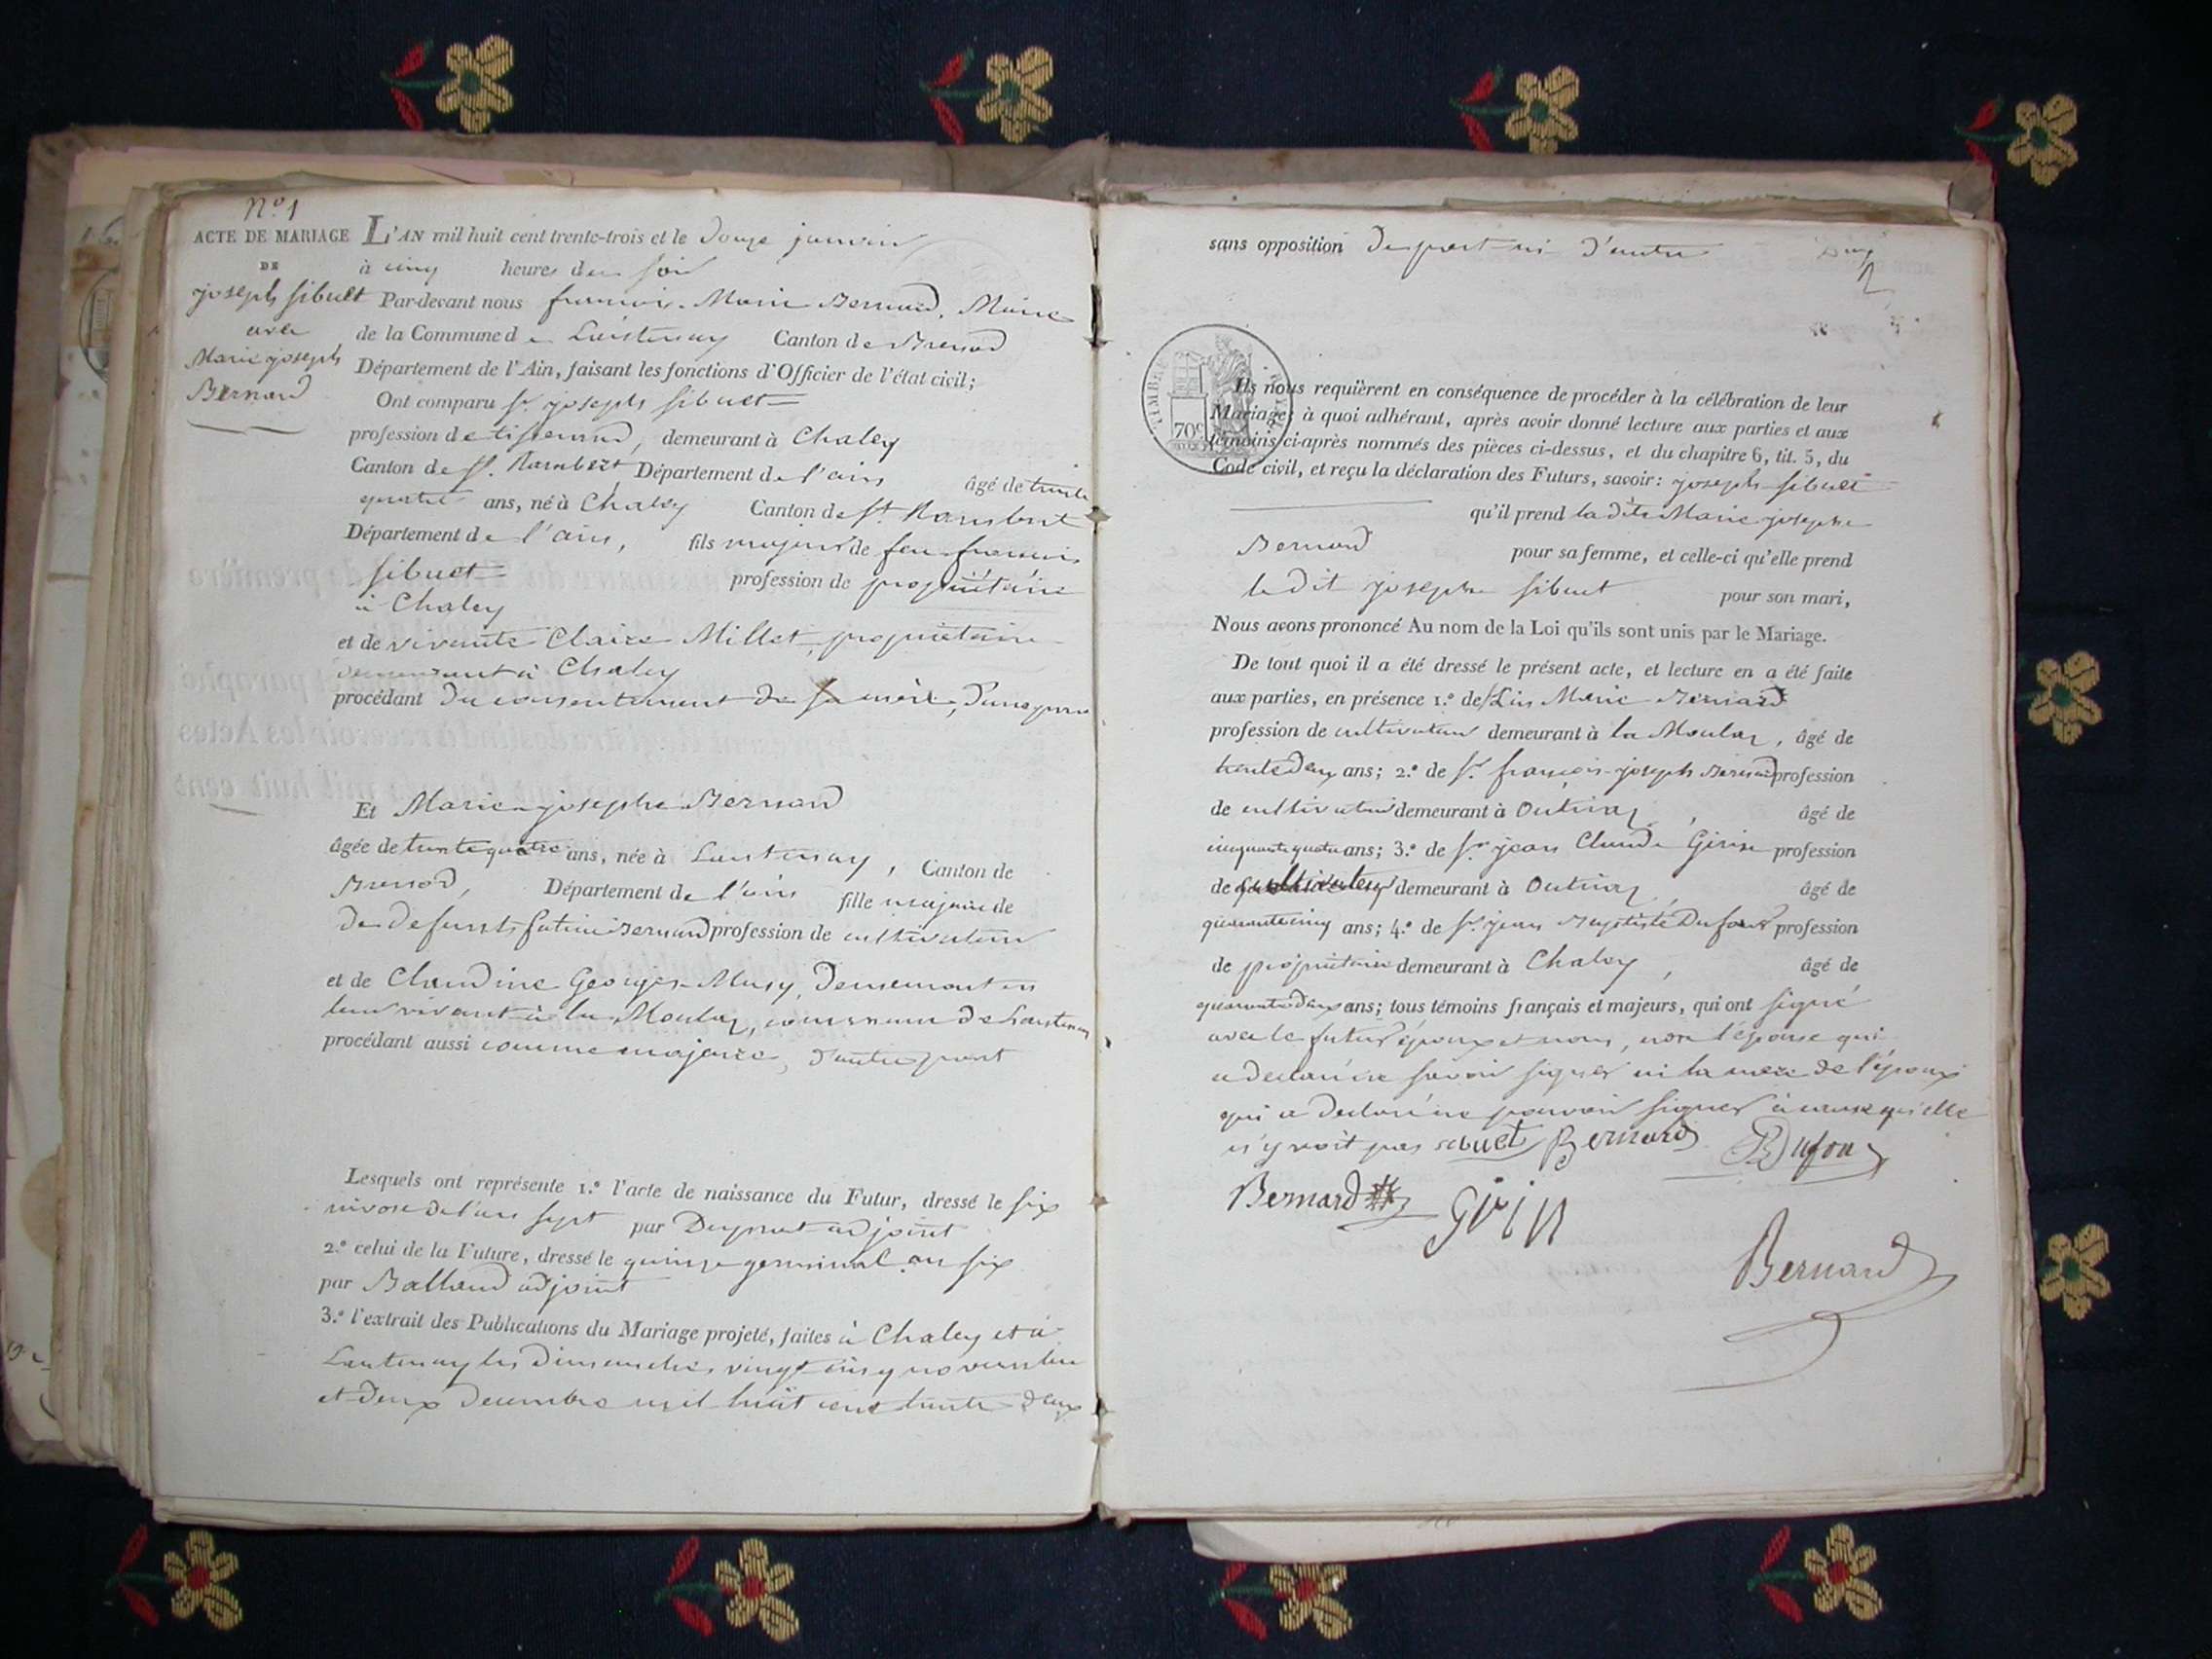 N.º 1
ACTE DE MARIAGE
DE
joseph sibuet
avec
Marie joseph
Bernard
L'AN mil huit cent trente-trois et le douze janvier
à cinq heures du soir
Par-devant nous françois Marie Bernard, Maire
de la Commune de Lantenay Canton de Brenod
Département de l'Ain, faisant les fonctions d'Officier de l'état civil;
Ont comparu sr. joseph sibuet
profession de tisserand, demeurant à Chaley
Canton de St. Rambert Département de l'ain âgé de trente
quatre ans, né à Chaley Canton de St. Rambert
Département de l'ain, fils majeur de feu françois
sibuet profession de propriétaire
à Chaley
et de vivante Claire Millet, propriétaire
demeurant à Chaley
procédant du consentement de sa mère, d'une part
Et Marie josephe Bernard
âgée de trente quatre ans, née à Lantenay, Canton de
Brenod, Département de l'ain fille majeure de
de defunts Bernard profession de cultivateur
et de Claudine Georges Musy, demeurant en
leur vivant à la Moulaz, commune de Lantenay
procédant aussi comme majeure, d'autre part
Lesquels ont représenté 1.º l'acte de naissance du Futur, dressé le six
nivose de l'an sept par adjoint
2.º celui de la Future, dressé le quinze germinal an six
par Balland adjoint
3.º l'extrait des Publications du Mariage projeté, faites à Chaley et à
Lantenay les dimanches vingt cinq novembre
et deux decembre mil huit cent trente deux
sans opposition de part ni d'autre
2
TIMBRE ROYAL
70c
Ils nous requièrent en conséquence de procéder à la célébration de leur
Mariage; à quoi adhérant, après avoir donné lecture aux parties et aux
témoins ci-après nommés des pièces ci-dessus, et du chapitre 6, tit. 5, du
Code civil, et reçu la déclaration des Futurs, savoir: joseph sibuet
qu'il prend la dite Marie josephe
Bernard pour sa femme, et celle-ci qu'elle prend
le dit joseph sibuet pour son mari,
Nous avons prononcé Au nom de la Loi qu'ils sont unis par le Mariage.
De tout quoi il a été dressé le présent acte, et lecture en a été faite
aux parties, en présence 1.º de Marie Bernard
profession de cultivateur demeurant à la Moulaz, âgé de
trente deux ans; 2.º de sr. françois joseph Bernard profession
de cultivateur demeurant à Outriaz, âgé de
cinquante quatre ans; 3.º de sr. jean Claude Girin profession
de cultivateur demeurant à Outriaz, âgé de
quarante cinq ans; 4.º de sr. jean Baptiste Dufour profession
de propriétaire demeurant à Chaley, âgé de
quarante deux ans; tous témoins français et majeurs, qui ont signé
avec le futur époux et nous, non l'épouse qui
a declaré ne savoir signer ni la mere de l'époux
qui a declaré ne pouvoir signer à cause qu'elle
n'y voit pas sibuet Bernard Dufour
Bernard Girin
Bernard